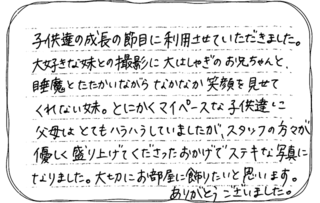 子供達の成長の節目に利用させていただきました。
大好きな妹との撮影に大はしゃぎのお兄ちゃんと、
睡魔とたたかいながらなかなか笑顔を見せて
くれない妹。とにかくマイペースな子供達に
父母はとてもハラハラしていましたが、スタッフの方々が
優しく盛り上げてくださったおかげでステキな写真に
なりました。大切にお部屋に飾りたいと思います。
ありがとうございました。